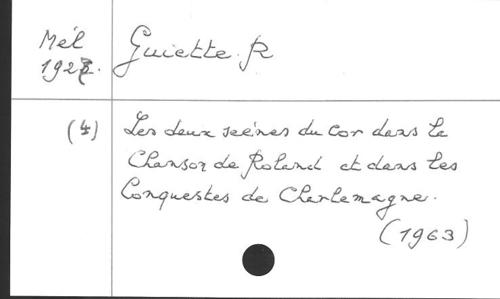 Mél Guiette. R
192
(4) Les deux scènes du Cor dans la
Chanson de Roland et dans les
Conquestes de Charlemagne.
(1963)